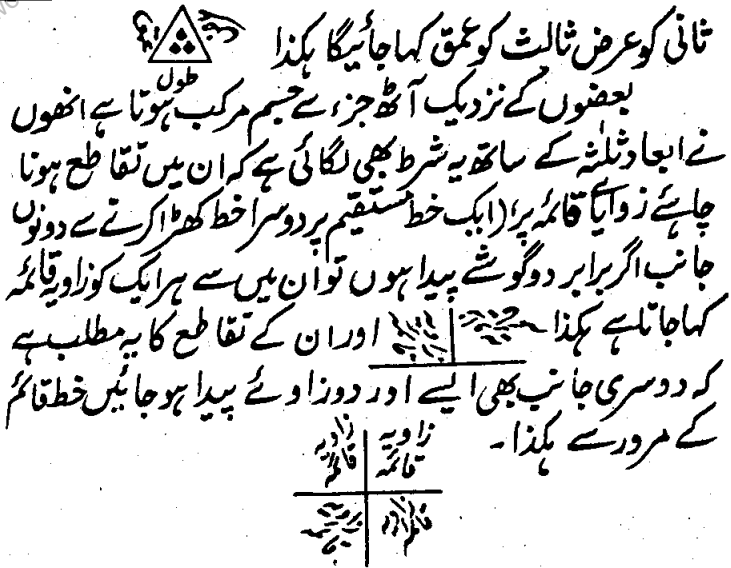 ثانی کو عرض ثالث کو عمق کہا جائیگا ہکذا
طول
بعضوں کے نزدیک آٹھ جزء سے جسم مرکب ہوتا ہے انھوں
نے ابعاد ثلٰثہ کے ساتھ یہ شرط بھی لگائی ہے کہ ان میں تقاطع ہونا
چاہئے زوایائے قائمہ پر (ایک خط مستقیم پر دوسرا خط کھڑا کرنے سے دونوں
جانب اگر برابر دو گوشے پیدا ہوں تو ان میں سے ہر ایک کو زاویہ قائمہ
کہا جاتا ہے ہکذا اور ان کے تقاطع کا یہ مطلب ہے
کہ دوسری جانب بھی ایسے اور دو زاوئے پیدا ہو جائیں خط قائم
کے مرور سے ہکذا۔
زاویہ قائمہ زاویہ قائمہ
زاویہ قائمہ زاویہ قائمہ